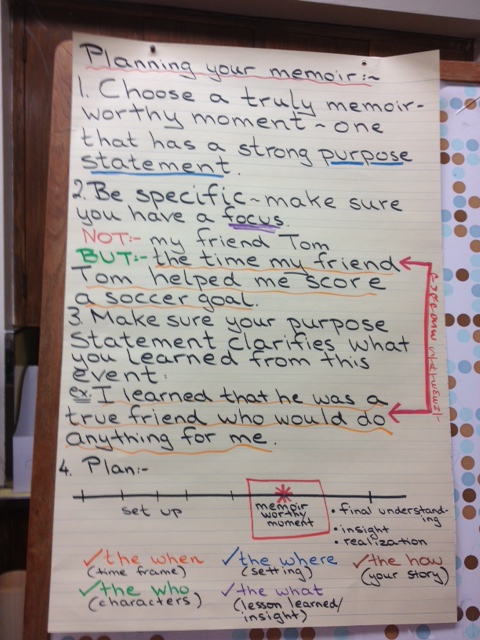 Planning your memoir:~
1. Choose a truly memoir-
worthy moment ~ one
that has a strong purpose
statement.
2. Be specific ~ make sure
you have a focus.
NOT:- my friend Tom
BUT:- the time my friend
Tom helped me score
a soccer goal.
3. Make sure your purpose
statement clarifies what
you learned from this
event.
ex. I learned that he was a
true friend who would do
anything for me.
4. Plan:-
set up
memoir
worthy
moment
• final understand-
ing
• insight
• realization
✓the when
(time frame)
✓the where
(setting)
✓the how
(your story)
✓the who
(characters)
✓the what
(lesson learned/
insight)